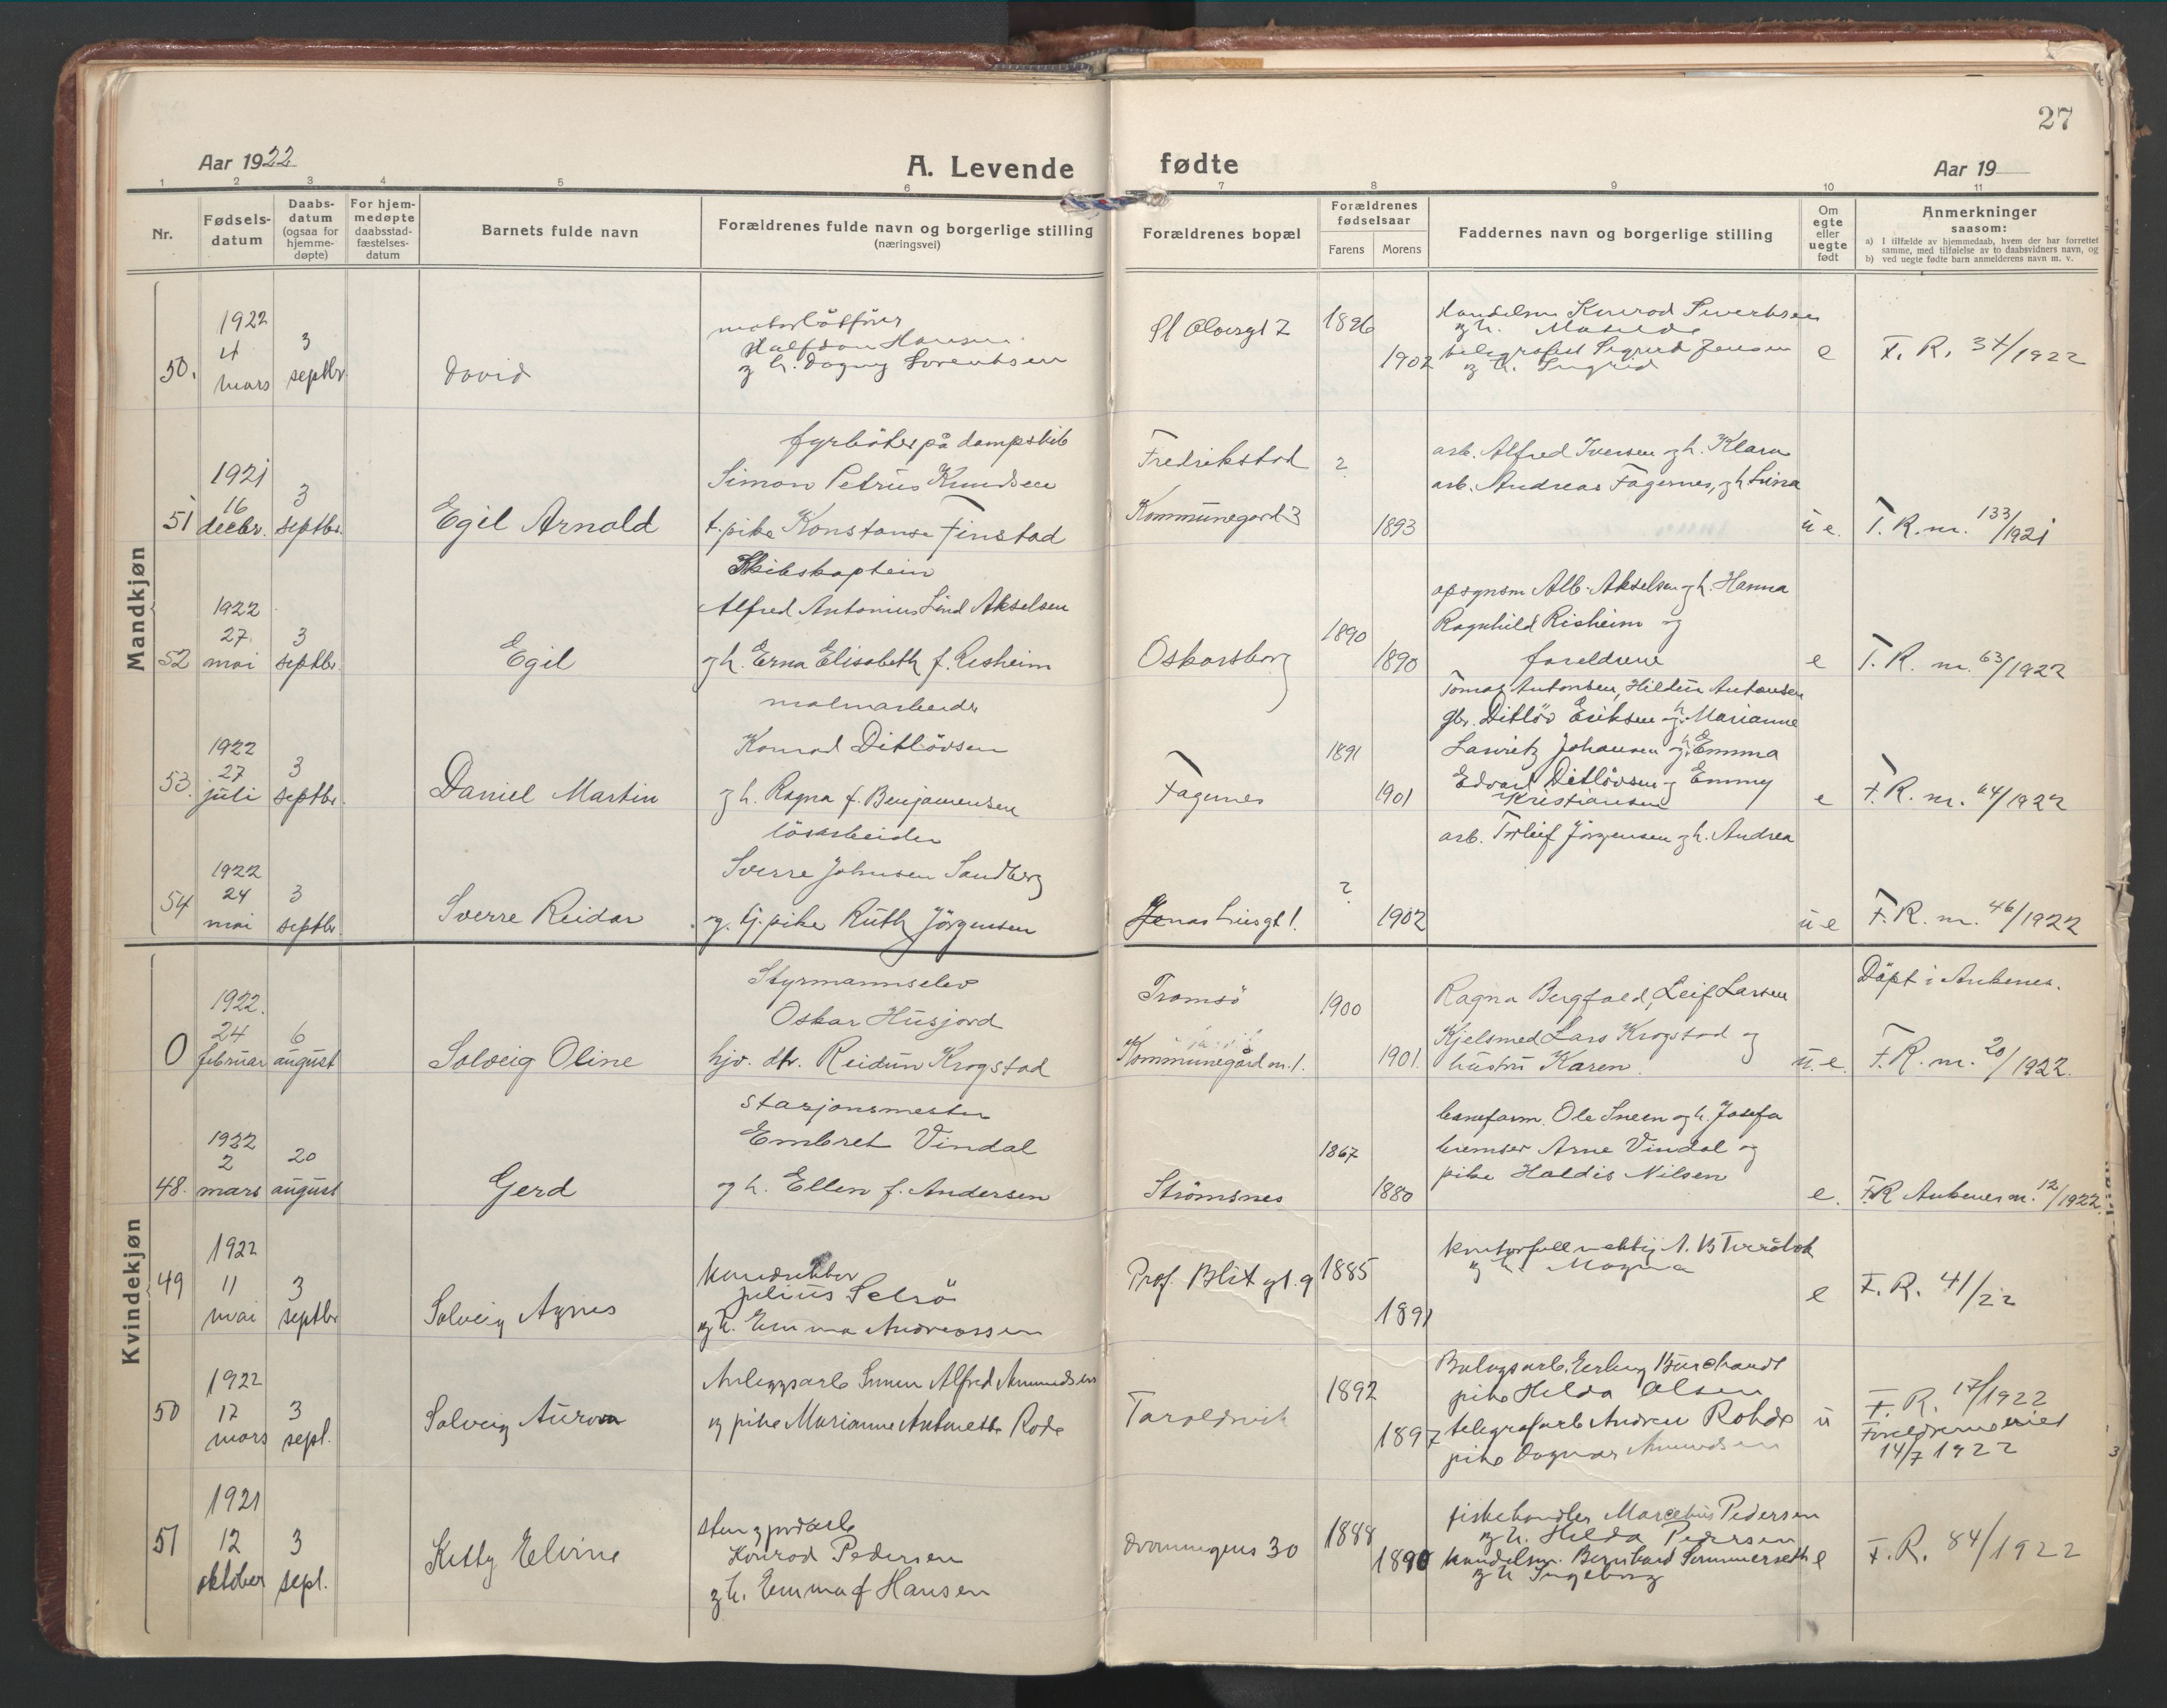 27
Aar 1922
A. Levende fødte
Aar 19
1 2 3 4 5 6 7 8 9 10 11
Nr.
Fødsels-
datum
Daabs-
datum
(ogsaa for
hjemme-
døpte)
For hjem-
medøpte
daabsstad-
fæstelses-
datum
Barnets fulde navn
Forældrenes fulde navn og borgerlige stilling
(næringsvei)
Forældrenes bopæl
Forældrenes
fødselsaar
Farens Morens
Faddernes navn og borgerlige stilling
Om
egte
eller
uegte
født
Anmerkninger
saasom:
a) I tilfælde av hjemmedaab, hvem der har forrettet
samme, med tilføielse av to daabsvidners navn, og
b) ved uegte fødte barn anmelderens navn m. v.
Mandkjøn
50.
1922
4
mars
3
septbr.
David
Halfdan Hansen
og h. Dagny Lorentsen
St Olavsgt 2
1896
1902
Handelsm Konrad Sivertsen
og h. Matilde
telegrafist Sigurd Jensen
og h. Ingrid
e
F. R. 34/1922
51
1921
16
decbr.
3
septbr.
Egil Arnold
fyrböter på dampskib
Simon Petrus Knudsen
t. pike Konstanse Finstad
Fredrikstad
Kommunegård 3
?
1893
arb. Alfred Iversen og h. Klara
arb. Andreas Fagernes, og h Lina
u e.
F. R. nr. 133/1921
52
1922
27.
mai
3
septbr.
Egil
Skibskaptein
Alfred Antonius Lind Akselsen
og h. Erna Elisabeth f. Risheim
Oskarsborg
1890
1890
opsynsm Alb. Akselsen og h. Hanna
Ragnhild Risheim og
foreldrene
e
F. R. nr. 63/1922
53.
1922
27
juli
3
septbr.
Daniel Martin
malmarbeider
Konrad Ditlövsen
og h. Ragna f. Benjaminsen
Fagernes
1891
1901
Tomas Antonsen, Hildur Antonsen
gbr. Ditlöv Eriksen og h. Marianne
Lauritz Johansen og h. Emma
Edvard Ditlövsen og Emmy
Kristiansen
e
F. R. nr. 64/1922
54
1922
24
mai
3
septbr.
Sverre Reidar
lösarbeider
Sverre Johnsen Sandberg
og tj. pike Ruth Jörgensen
Jonas Liesgt 1.
?
1902
arb. Torleif Jörgensen og h. Andrea
u e
F. R. nr. 46/1922
Kvindekjøn
0
1922.
24
februar
6
august
Solveig Oline
Styrmannselev
Oskar Husjord
hjv. dtr. Reidun Krogstad
Tromsö
Kommunegård nr. 1.
1900
1901.
Ragna Bergfald, Leif Larsen
Kjelsmed Lars Krogstad og
hustru Karen.
u. e.
Döpt i Ankenes.
F. R. nr. 20/1922.
48.
1922
2
mars
20
august
Gerd
Stasjonsmester
Embret Vindal
og h. Ellen f. Andersen
Strömsnes
1867
1880
baneform. Ole Sneen og h. Josefa
bremser Arne Vindal og
pike Haldis Nilsen
e.
F.R Ankenes nr. 12/1922.
49
1922
11
mai
3
septbr
Solveig Agnes
konduktör
Julius Selsö
og h. Emma Andreassen
Prof. Blix gt. 9
1885
1891
og h. Magna
e
F. R. 41/22
50
1922
17
mars
3
sept.
Solveig Aurora
Anleggsarb Simon Alfred Amundsen
og pike Marianne Antonette Rode
Taraldsvik
1892
1897
Bulagsarb. Erling Burchardt
pike Helda Olsen
telegrafarb Andreas Rohde
pike Dagmar Amundsen
u
F. R. 17/1922
Foreldrene viet
14/7 1922
51
1921
12
oktober
3
sept.
Kitty Elvine
Konrad Pedersen
og h. Emma f Hansen
Dronningens 30
1888
1890
fiskehandler Marcelius Pedersen
og h. Helda Pedersen
handelsm. Bernhard Sommerseth
og h Ingeborg
e
F. R. 84/1922